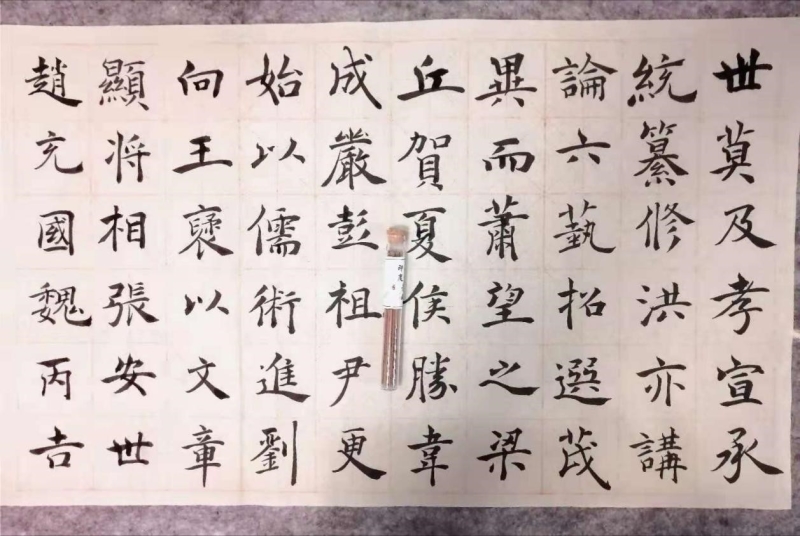 世莫及孝宣承
統纂修洪亦講
論六藝招選茂
異而蕭望之梁
丘賀夏侯勝韋
成嚴彭祖尹更
始以儒術進劉
向王褒以文章
顯将相張安世
趙充國魏丙吉
印度